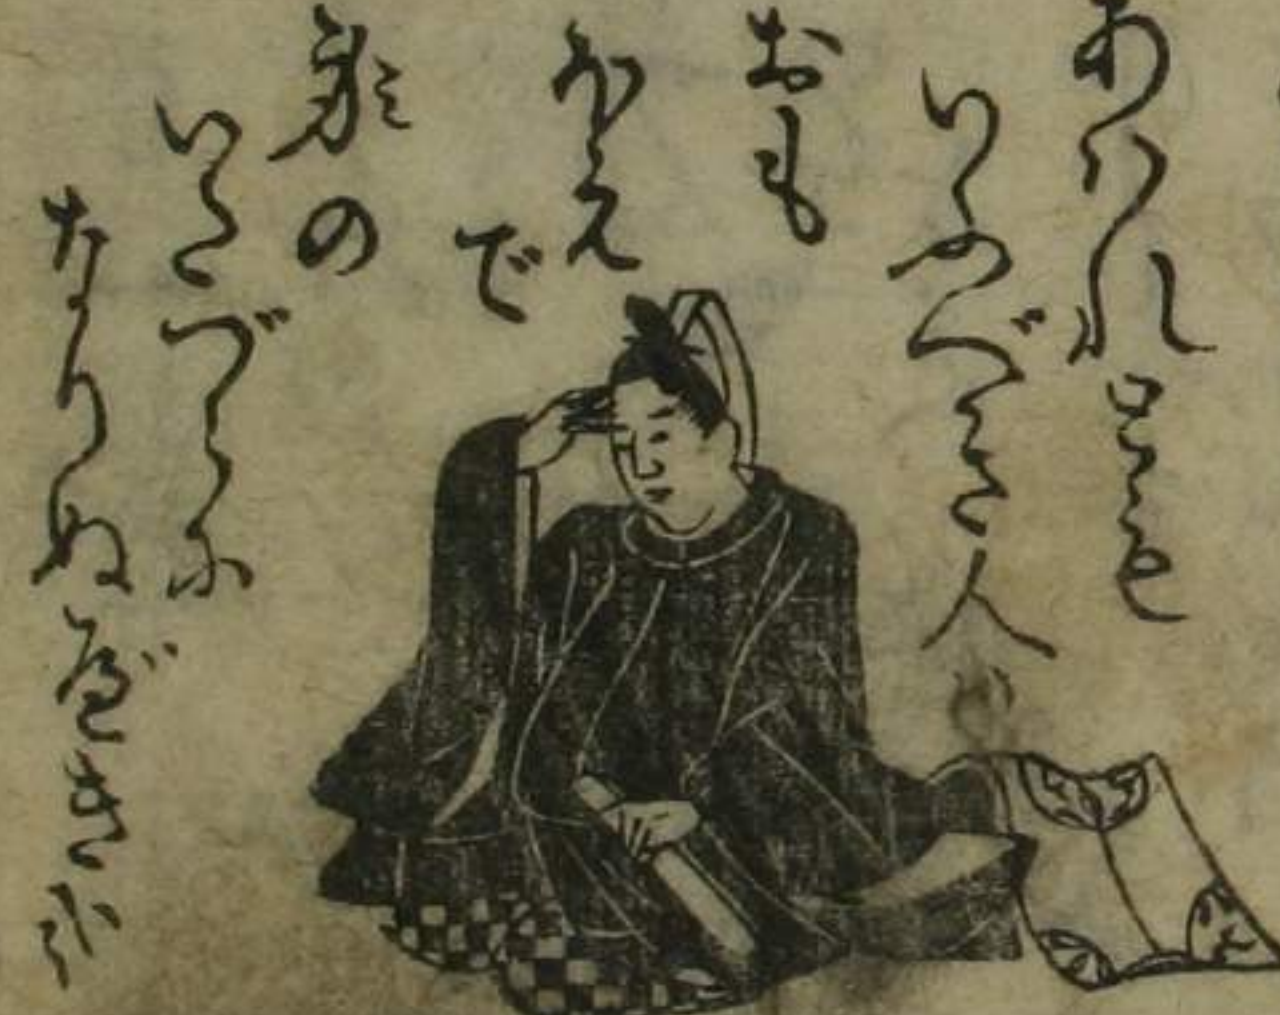 あはれとも
いふべき人は
おも
ほえ
で
身の
いたづらに
なりぬべき哉